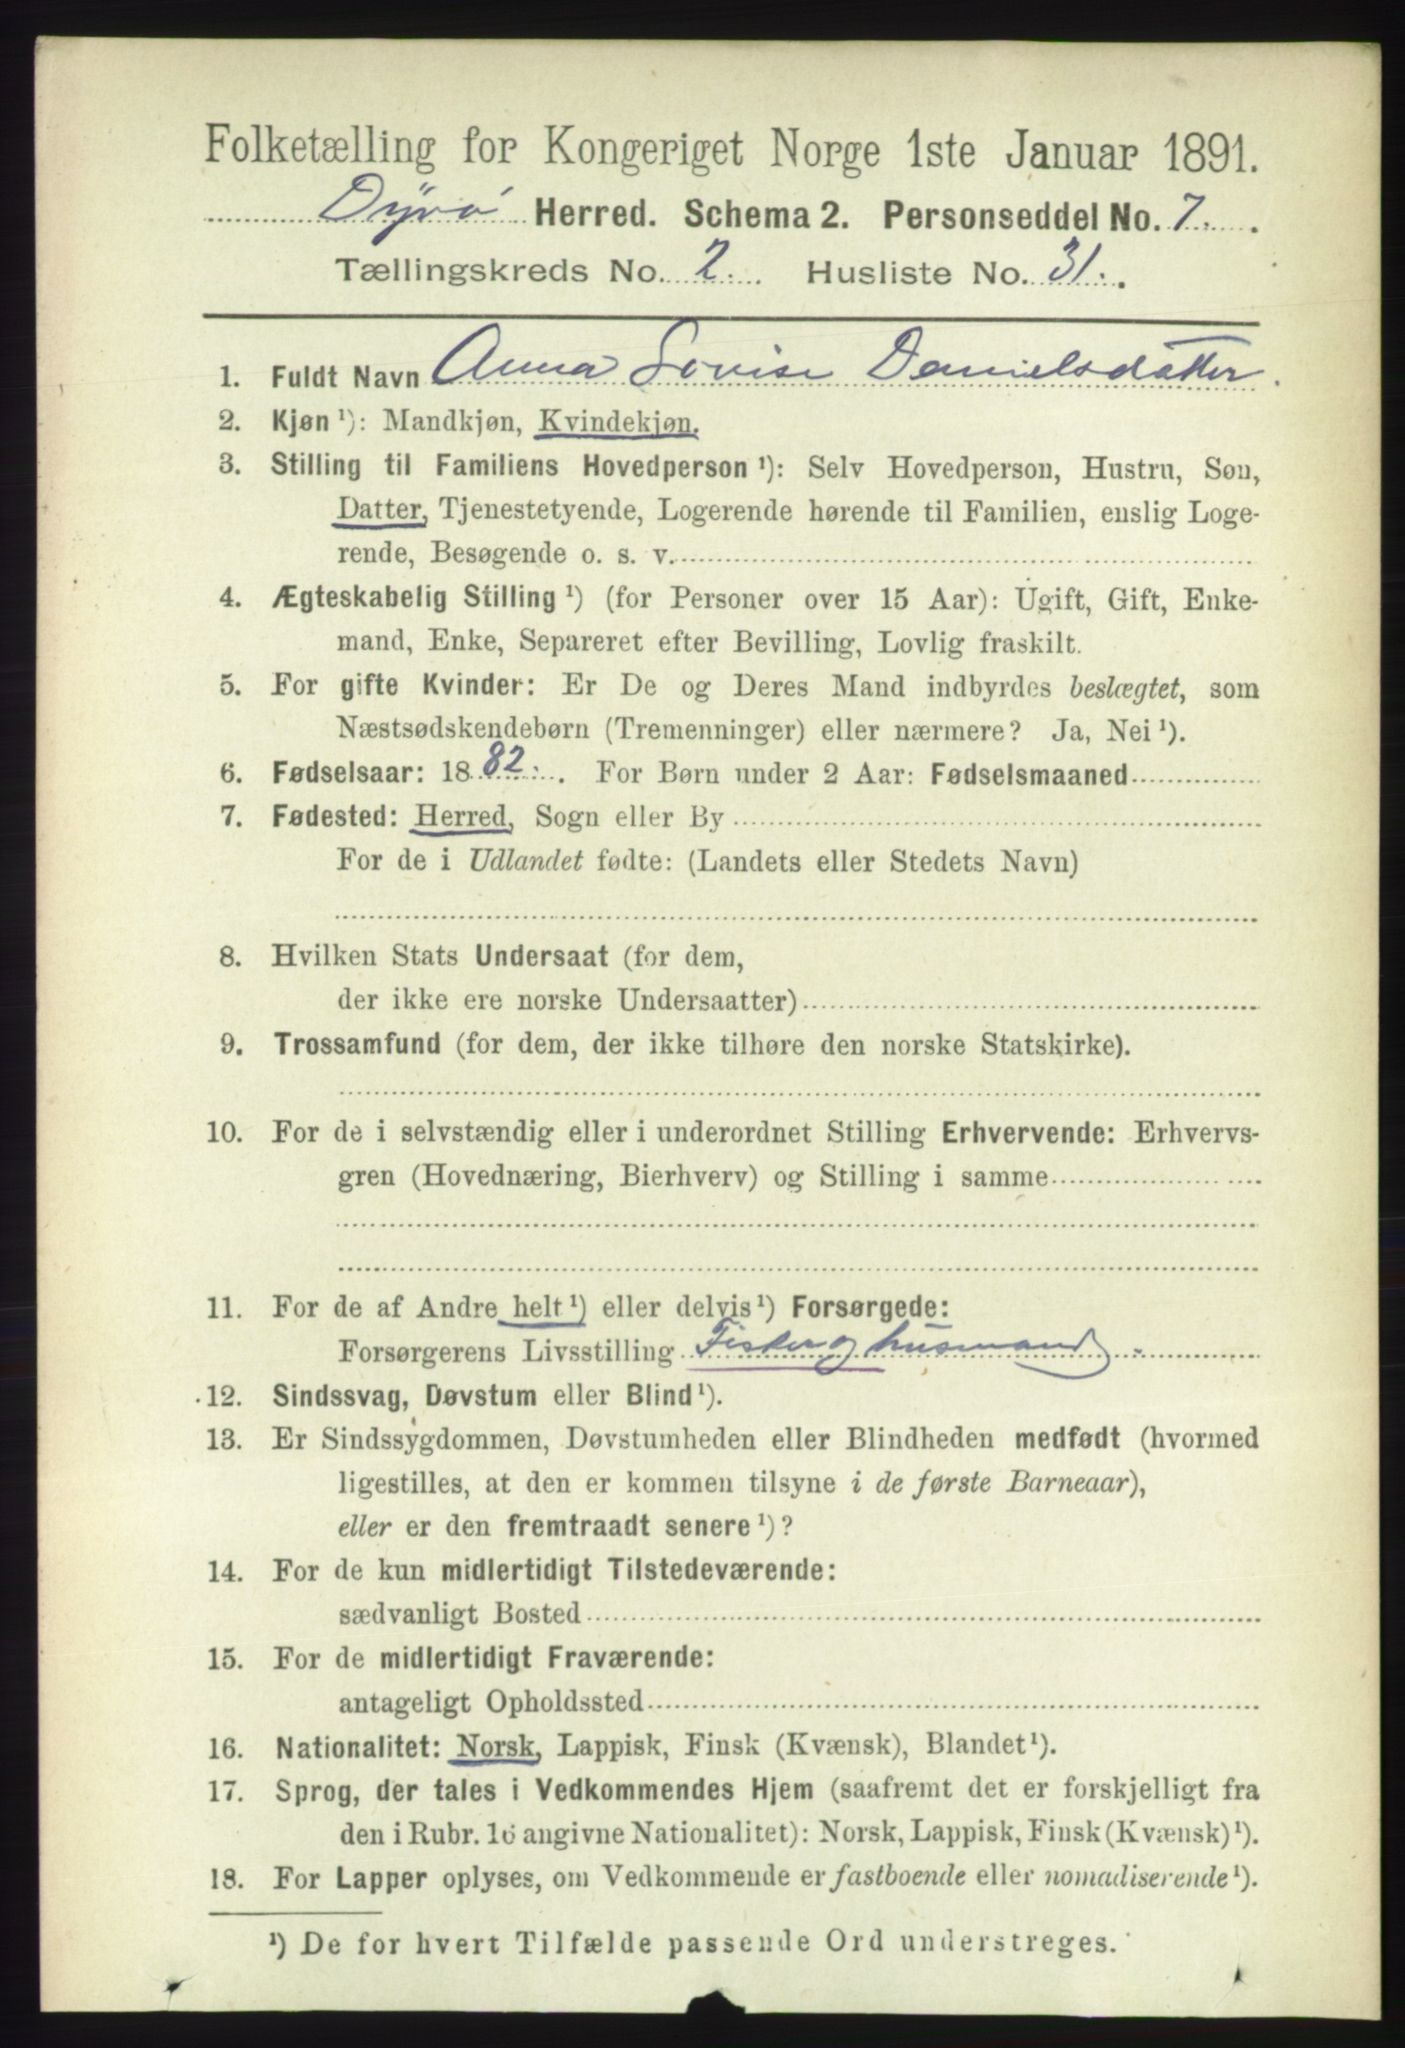 Folketælling for Kongeriget Norge 1ste Januar 1891.
Dyrø Herred. Schema 2. Personseddel No. 7.
Tællingskreds No. 2. Husliste No. 31.
1. Fuldt Navn Anna Lovise Danielsdatter
2. Kjøn¹): Mandkjøn, Kvindekjøn.
3. Stilling til Familiens Hovedperson¹): Selv Hovedperson, Hustru, Søn,
Datter, Tjenestetyende, Logerende hørende til Familien, enslig Loge-
rende, Besøgende o. s. v.
4. Ægteskabelig Stilling¹) (for Personer over 15 Aar): Ugift, Gift, Enke-
mand, Enke, Separeret efter Bevilling, Lovlig fraskilt.
5. For gifte Kvinder: Er De og Deres Mand indbyrdes beslægtet, som
Næstsødskendebørn (Tremenninger) eller nærmere? Ja, Nei¹).
6. Fødselsaar: 1882. For Børn under 2 Aar: Fødselsmaaned
7. Fødested: Herred, Sogn eller By
For de i Udlandet fødte: (Landets eller Stedets Navn)
8. Hvilken Stats Undersaat (for dem,
der ikke ere norske Undersaatter)
9. Trossamfund (for dem, der ikke tilhøre den norske Statskirke).
10. For de i selvstændig eller i underordnet Stilling Erhvervende: Erhvervs-
gren (Hovednæring, Bierhverv) og Stilling i samme
11. For de af Andre helt¹) eller delvis¹) Forsørgede:
Forsørgerens Livsstilling Fisker og husmand
12. Sindssvag, Døvstum eller Blind¹).
13. Er Sindssygdommen, Døvstumheden eller Blindheden medfødt (hvormed
ligestilles, at den er kommen tilsyne i de første Barneaar),
eller er den fremtraadt senere¹)?
14. For de kun midlertidigt Tilstedeværende:
sædvanligt Bosted
15. For de midlertidigt Fraværende:
antageligt Opholdssted
16. Nationalitet: Norsk, Lappisk, Finsk (Kvænsk), Blandet¹).
17. Sprog, der tales i Vedkommendes Hjem (saafremt det er forskjelligt fra
den i Rubr. 16 angivne Nationalitet): Norsk, Lappisk, Finsk (Kvænsk)¹).
18. For Lapper oplyses, om Vedkommende er fastboende eller nomadiserende¹).
¹) De for hvert Tilfælde passende Ord understreges.